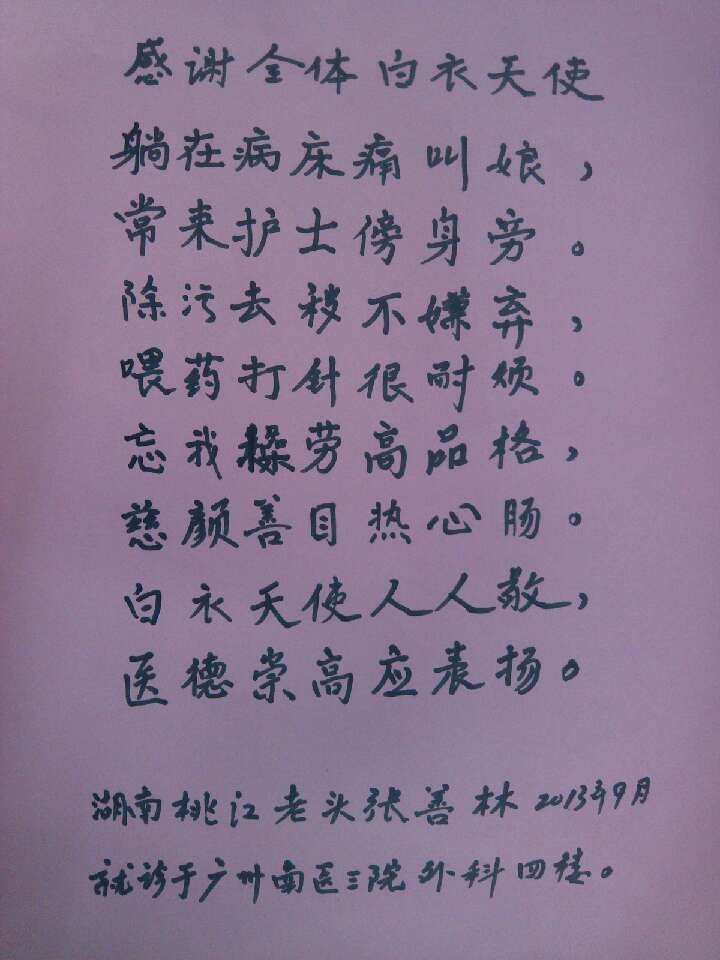 感谢全体白衣天使
躺在病床痛叫娘，
常来护士傍身旁。
除污去秽不嫌弃，
喂药打针很耐烦。
忘我操劳高品格，
慈颜善目热心肠。
白衣天使人人敬，
医德崇高应表扬。
湖南桃江老头张善林2013年9月
就诊于广州南医三院外科四楼。